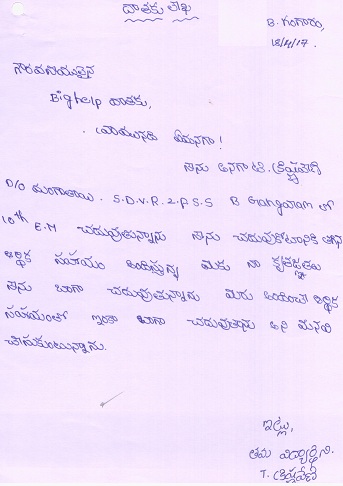 దాతకు లేఖ
B. గంగారం,
18/4/17.
గౌరవనీయులైన
Bighelp దాతకు,
వ్రాయునది ఏమనగా!
నేను అనగా టి. కృష్ణవేణి
D/o మంగాతాయి. S.D.V.R.Z.P.S.S B Gangavam లో
10th E.M చదువుతున్నాను నేను చదువుకోటానికి
ఆర్థిక సహాయం అందిస్తున్న మీకు నా కృతజ్ఞతలు
నేను బాగా చదువుతున్నాను మీరు అందించే ఆర్థిక
సహయంతో ఇంకా బాగా చదువుతాను అని మనవి
చేసుకుంటున్నాను.
ఇట్లు,
తమ విద్యార్థిని.
T. కృష్ణవేణి